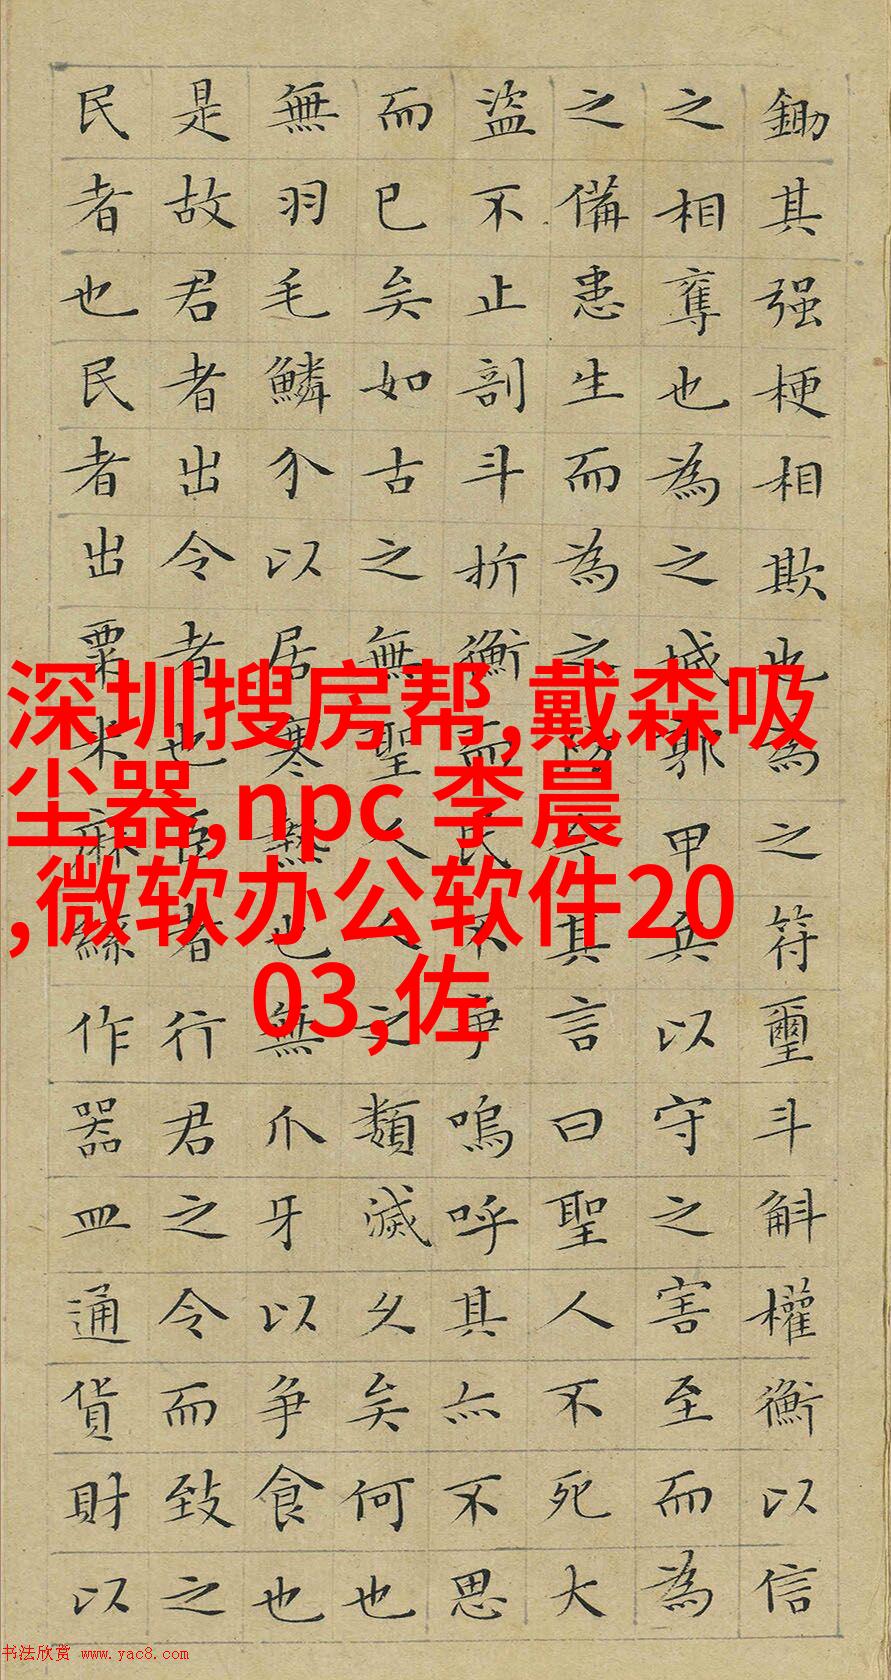 鋤其强梗相欺也為之符璽斗斛權衡以信
之相奪也為之城郭甲兵以守之害至而為
之備患生而為之防今其言曰聖人不死大
盜不止剖斗折衡而民不爭嗚呼其亦不思
而已矣如古之無聖人人之類滅久矣何也
無羽毛鱗介以居寒熱也無爪牙以争食也
是故君者出令者也臣者行君之令而致之
民者也民者出粟米麻絲作器皿通貨財以
深圳搜房帮,戴森吸
尘器,npc 李晨
,微软办公软件20
03,佐
书法欣赏 www.yac8.com